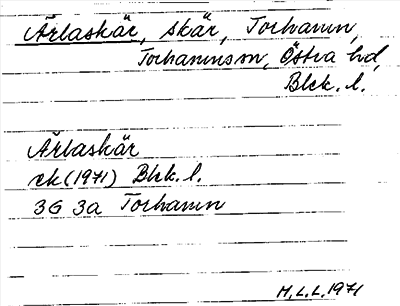 Ärlaskär, skär, Torhamn,
Torhamns sn, Östra hd,
Blek. l.
Ärlaskär
ek (1971) Blek. l.
3G 3a Torhamn
M.L.L. 1971